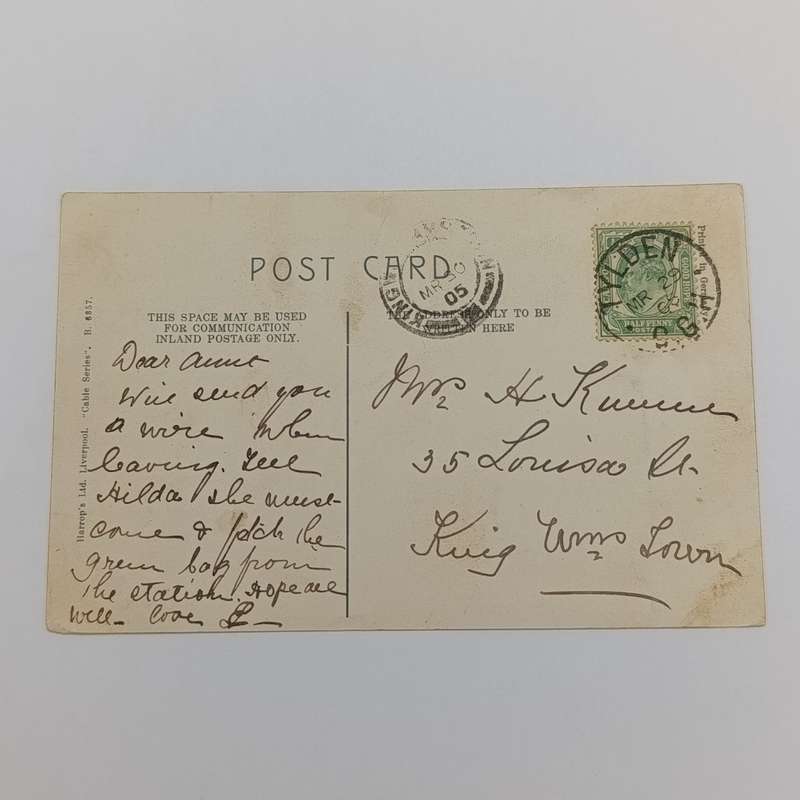 POST CARD
THIS SPACE MAY BE USED
FOR COMMUNICATION
INLAND POSTAGE ONLY.
THE ADDRESS ONLY TO BE
WRITTEN HERE
Printed in Germany
Harrop's Ltd. Liverpool. "Cable Series". H. 6857.
KING WMS TOWN
MR 30
05
TYLDEN
MR 29
05
C.G.H.
HALF PENNY
POSTAGE
Dear Aunt
Will send you
a wire when
leaving. Tell
Hilda she must
come & fetch the
green bag from
the station. Hope all
well - love
Mrs H
35 Louisa St.
King Wms Town